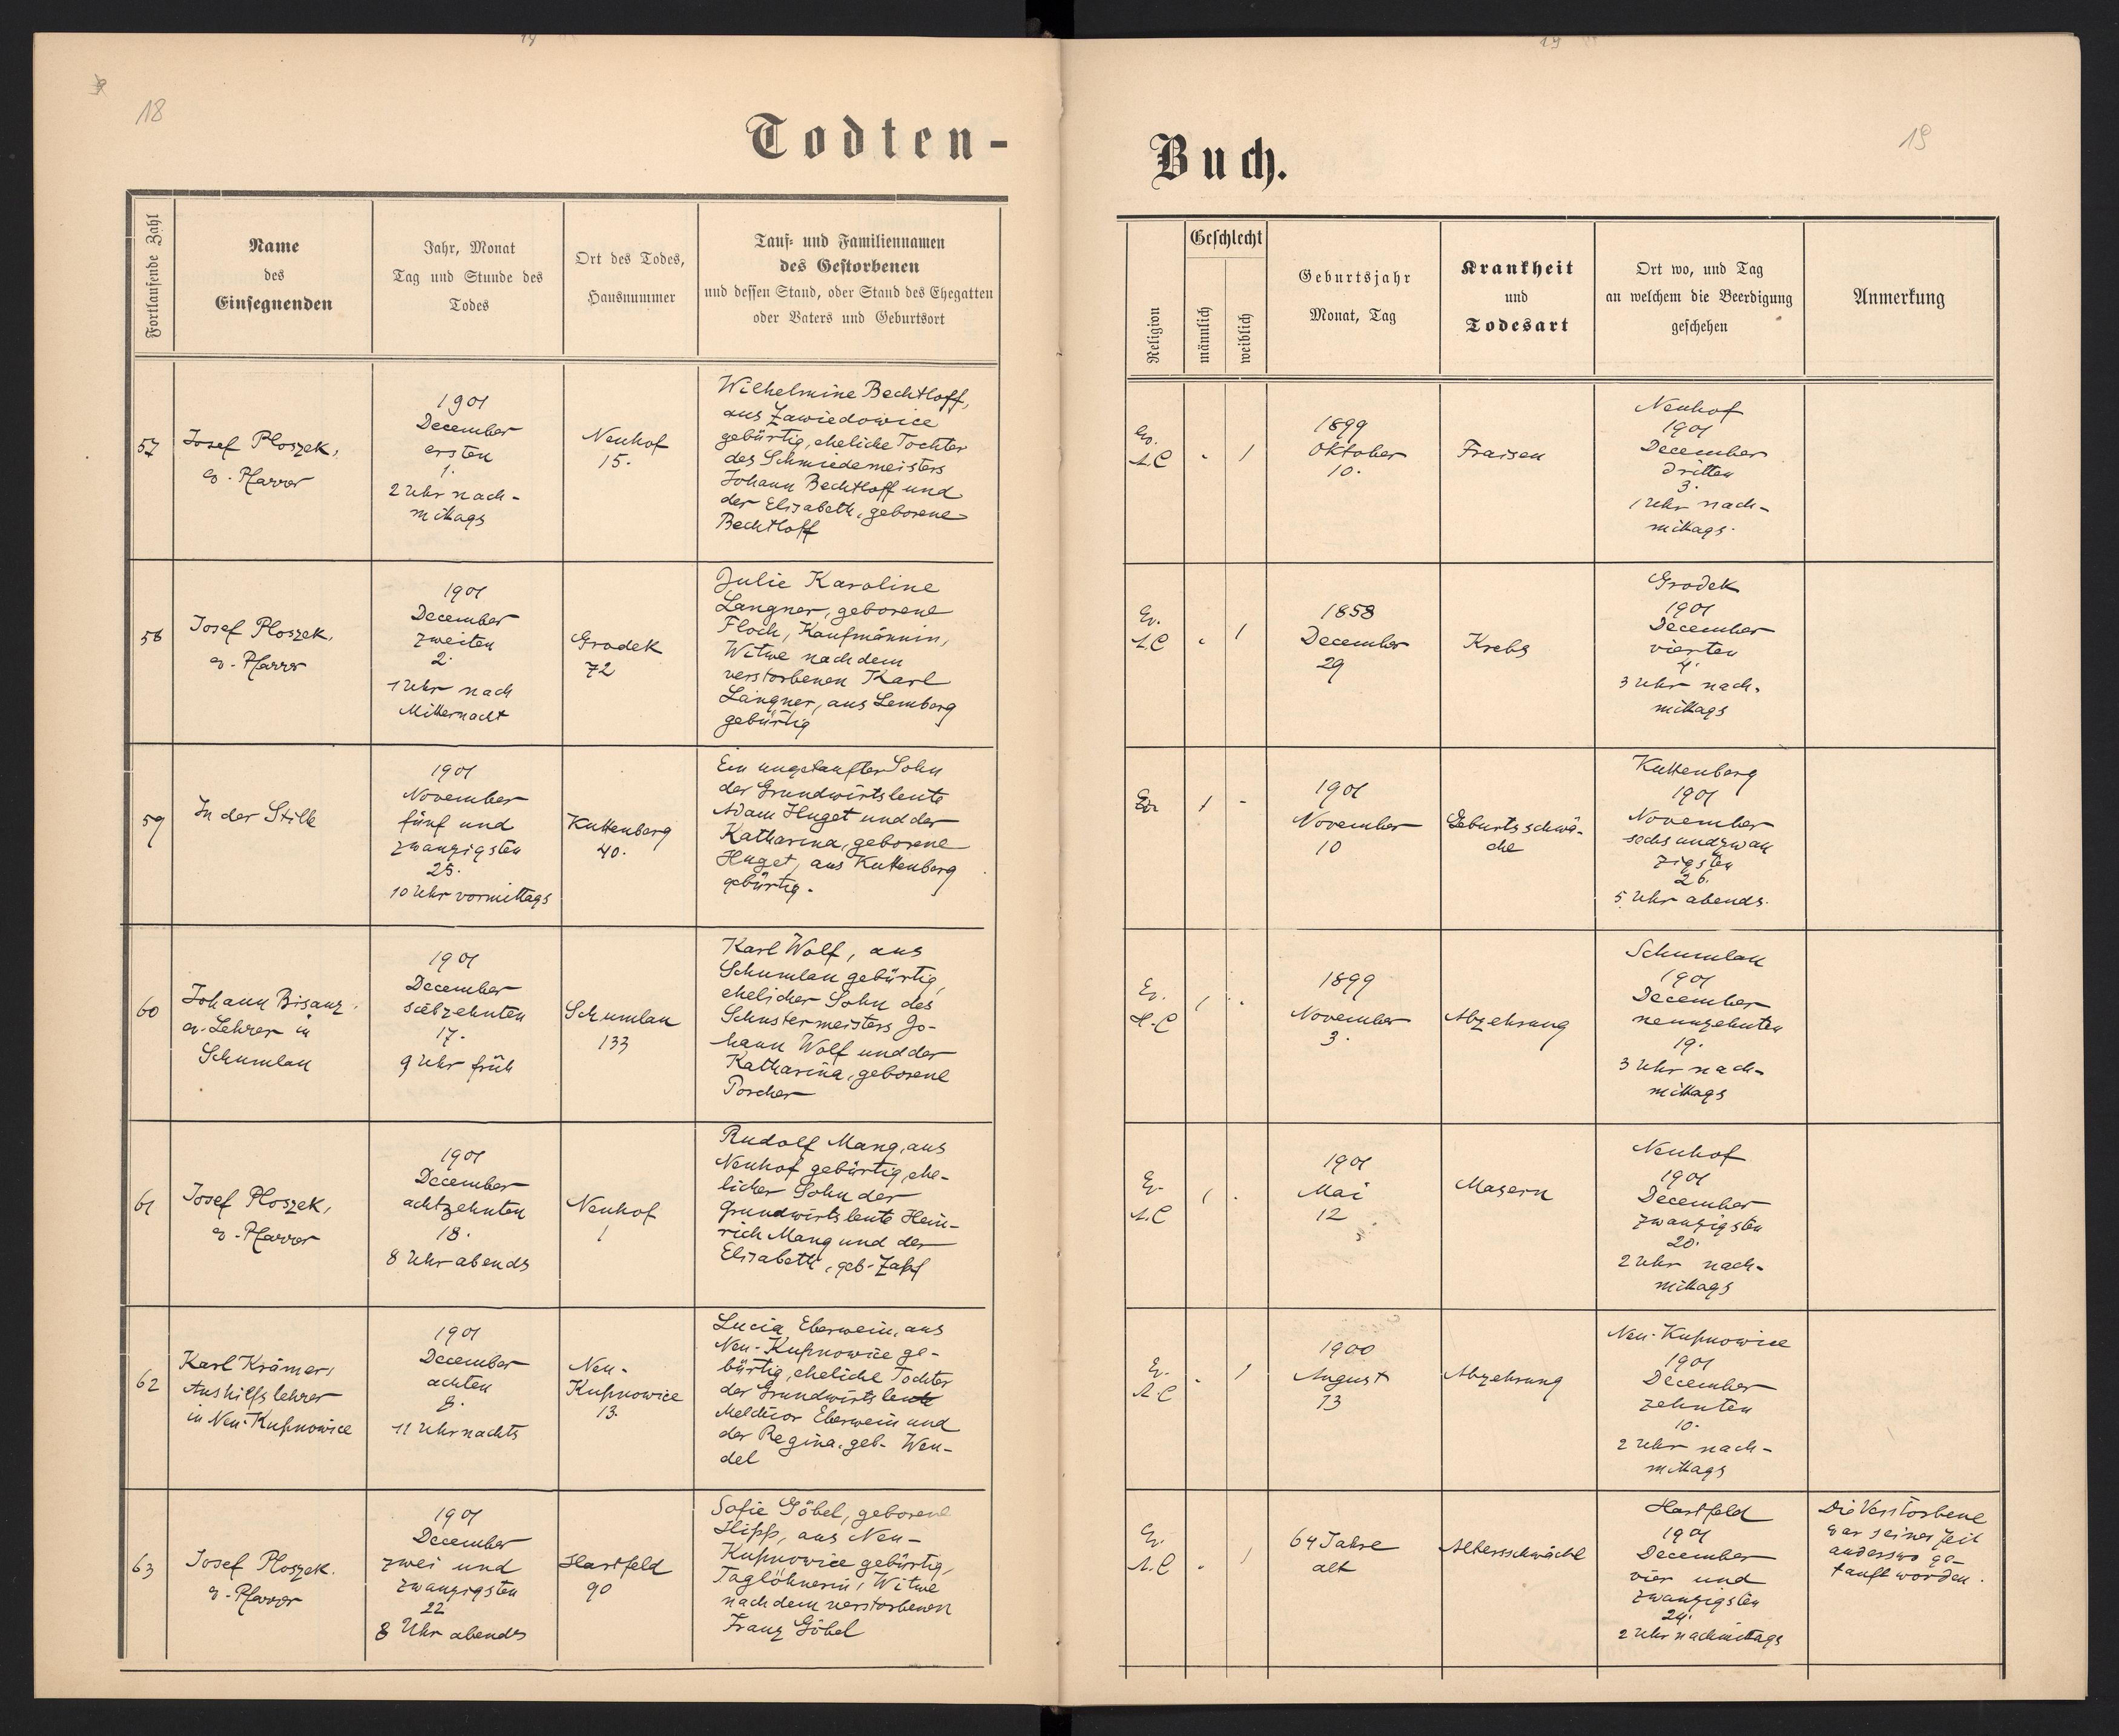 18
Todten-
Fortlaufende Zahl
Name
des
Einsegnenden
Jahr, Monat
Tag und Stunde des
Todes
Ort des Todes,
Hausnummer
Tauf- und Familiennamen
des Gestorbenen
und dessen Stand, oder Stand des Ehegatten
oder Vaters und Geburtsort
57
Josef Ploszek,
ev. Pfarrer
1901
December
ersten
1.
2 Uhr nach-
mittags
Neuhof
15.
Wilhelmine Bechtloff,
aus Zawiedowice
gebürtig, eheliche Tochter
des Schmiedemeisters
Johann Bechtloff und
der Elisabeth, geborene
Bechtloff
58
Josef Ploszek,
ev. Pfarrer
1901
December
zweiten
2.
1 Uhr nach
Mitternacht
Grodek
72
Julie Karoline
Langner, geborene
Floch, Kaufmännin,
Witwe nach dem
verstorbenen Karl
Langner, aus Lemberg
gebürtig
59
In der Stille
1901
November
fünf und
zwanzigsten
25.
10 Uhr vormittags
Kuttenberg
40.
Ein ungetaufter Sohn
der Grundwirtsleute
Adam Huget und der
Katharina, geborene
Huget, aus Kuttenberg
gebürtig.
60
Johann Bisanz,
ev. Lehrer in
Schumlau
1901
December
siebzehnten
17.
9 Uhr früh
Schumlau
133
Karl Wolf, aus
Schumlau gebürtig,
ehelicher Sohn des
Schustermeisters Jo-
hann Wolf und der
Katharina, geborene
Porcher
61
Josef Ploszek,
ev. Pfarrer
1901
December
achtzehnten
18.
8 Uhr abends
Neuhof
1
Rudolf Mang, aus
Neuhof gebürtig, ehe-
licher Sohn der
Grundwirtsleute Hein-
rich Mang und der
Elisabeth, geb. Zapf
62
Karl Krämer,
Aushilfslehrer
in Neu-Kupnowice
1901
December
achten
8.
11 Uhr nachts
Neu-
Kupnowice
13.
Lucia Eberwein, aus
Neu-Kupnowice ge-
bürtig, eheliche Tochter
der Grundwirtsleute
Melchior Eberwein und
der Regina, geb. Wen-
del
63
Josef Ploszek,
ev. Pfarrer
1901
December
zwei und
zwanzigsten
22
8 Uhr abends
Hartfeld
90
Sofie Göbel, geborene
Hipp, aus Neu-
Kupnowice gebürtig,
Taglöhnerin, Witwe
nach dem verstorbenen
Franz Göbel
19
Buch.
Religion
Geschlecht
männlich
weiblich
Geburtsjahr
Monat, Tag
Krankheit
und
Todesart
Ort wo, und Tag
an welchem die Beerdigung
geschehen
Anmerkung
Ev.
A.C
-
1
1899
Oktober
10.
Fraisen
Neuhof
1901
December
dritten
3.
1 Uhr nach-
mittags.
Ev.
A.C
-
1
1858
December
29
Krebs
Grodek
1901
December
vierten
4.
3 Uhr nach-
mittags
Ev
1
-
1901
November
10
Geburtsschwä-
che
Kuttenberg
1901
November
sechsundzwan
zigsten
26.
5 Uhr abends.
Ev.
H.C
1
-
1899
November
3.
Abzehrung
Schumlau
1901
December
neunzehnten
19.
3 Uhr nach-
mittags
Ev.
A.C
1
-
1901
Mai
12
Masern
Neuhof
1901
December
zwanzigsten
20.
2 Uhr nach-
mittags
Ev.
A.C
-
1
1900
August
13
Abzehrung
Neu-Kupnowice
1901
December
zehnten
10.
2 Uhr nach-
mittags
Ev.
A.C
-
1
64 Jahre
alt
Altersschwäche
Hartfeld
1901
December
vier und
zwanzigsten
24.
2 Uhr nachmittags
Die Verstorbene
war seiner Zeit
anderswo ge-
tauft worden.